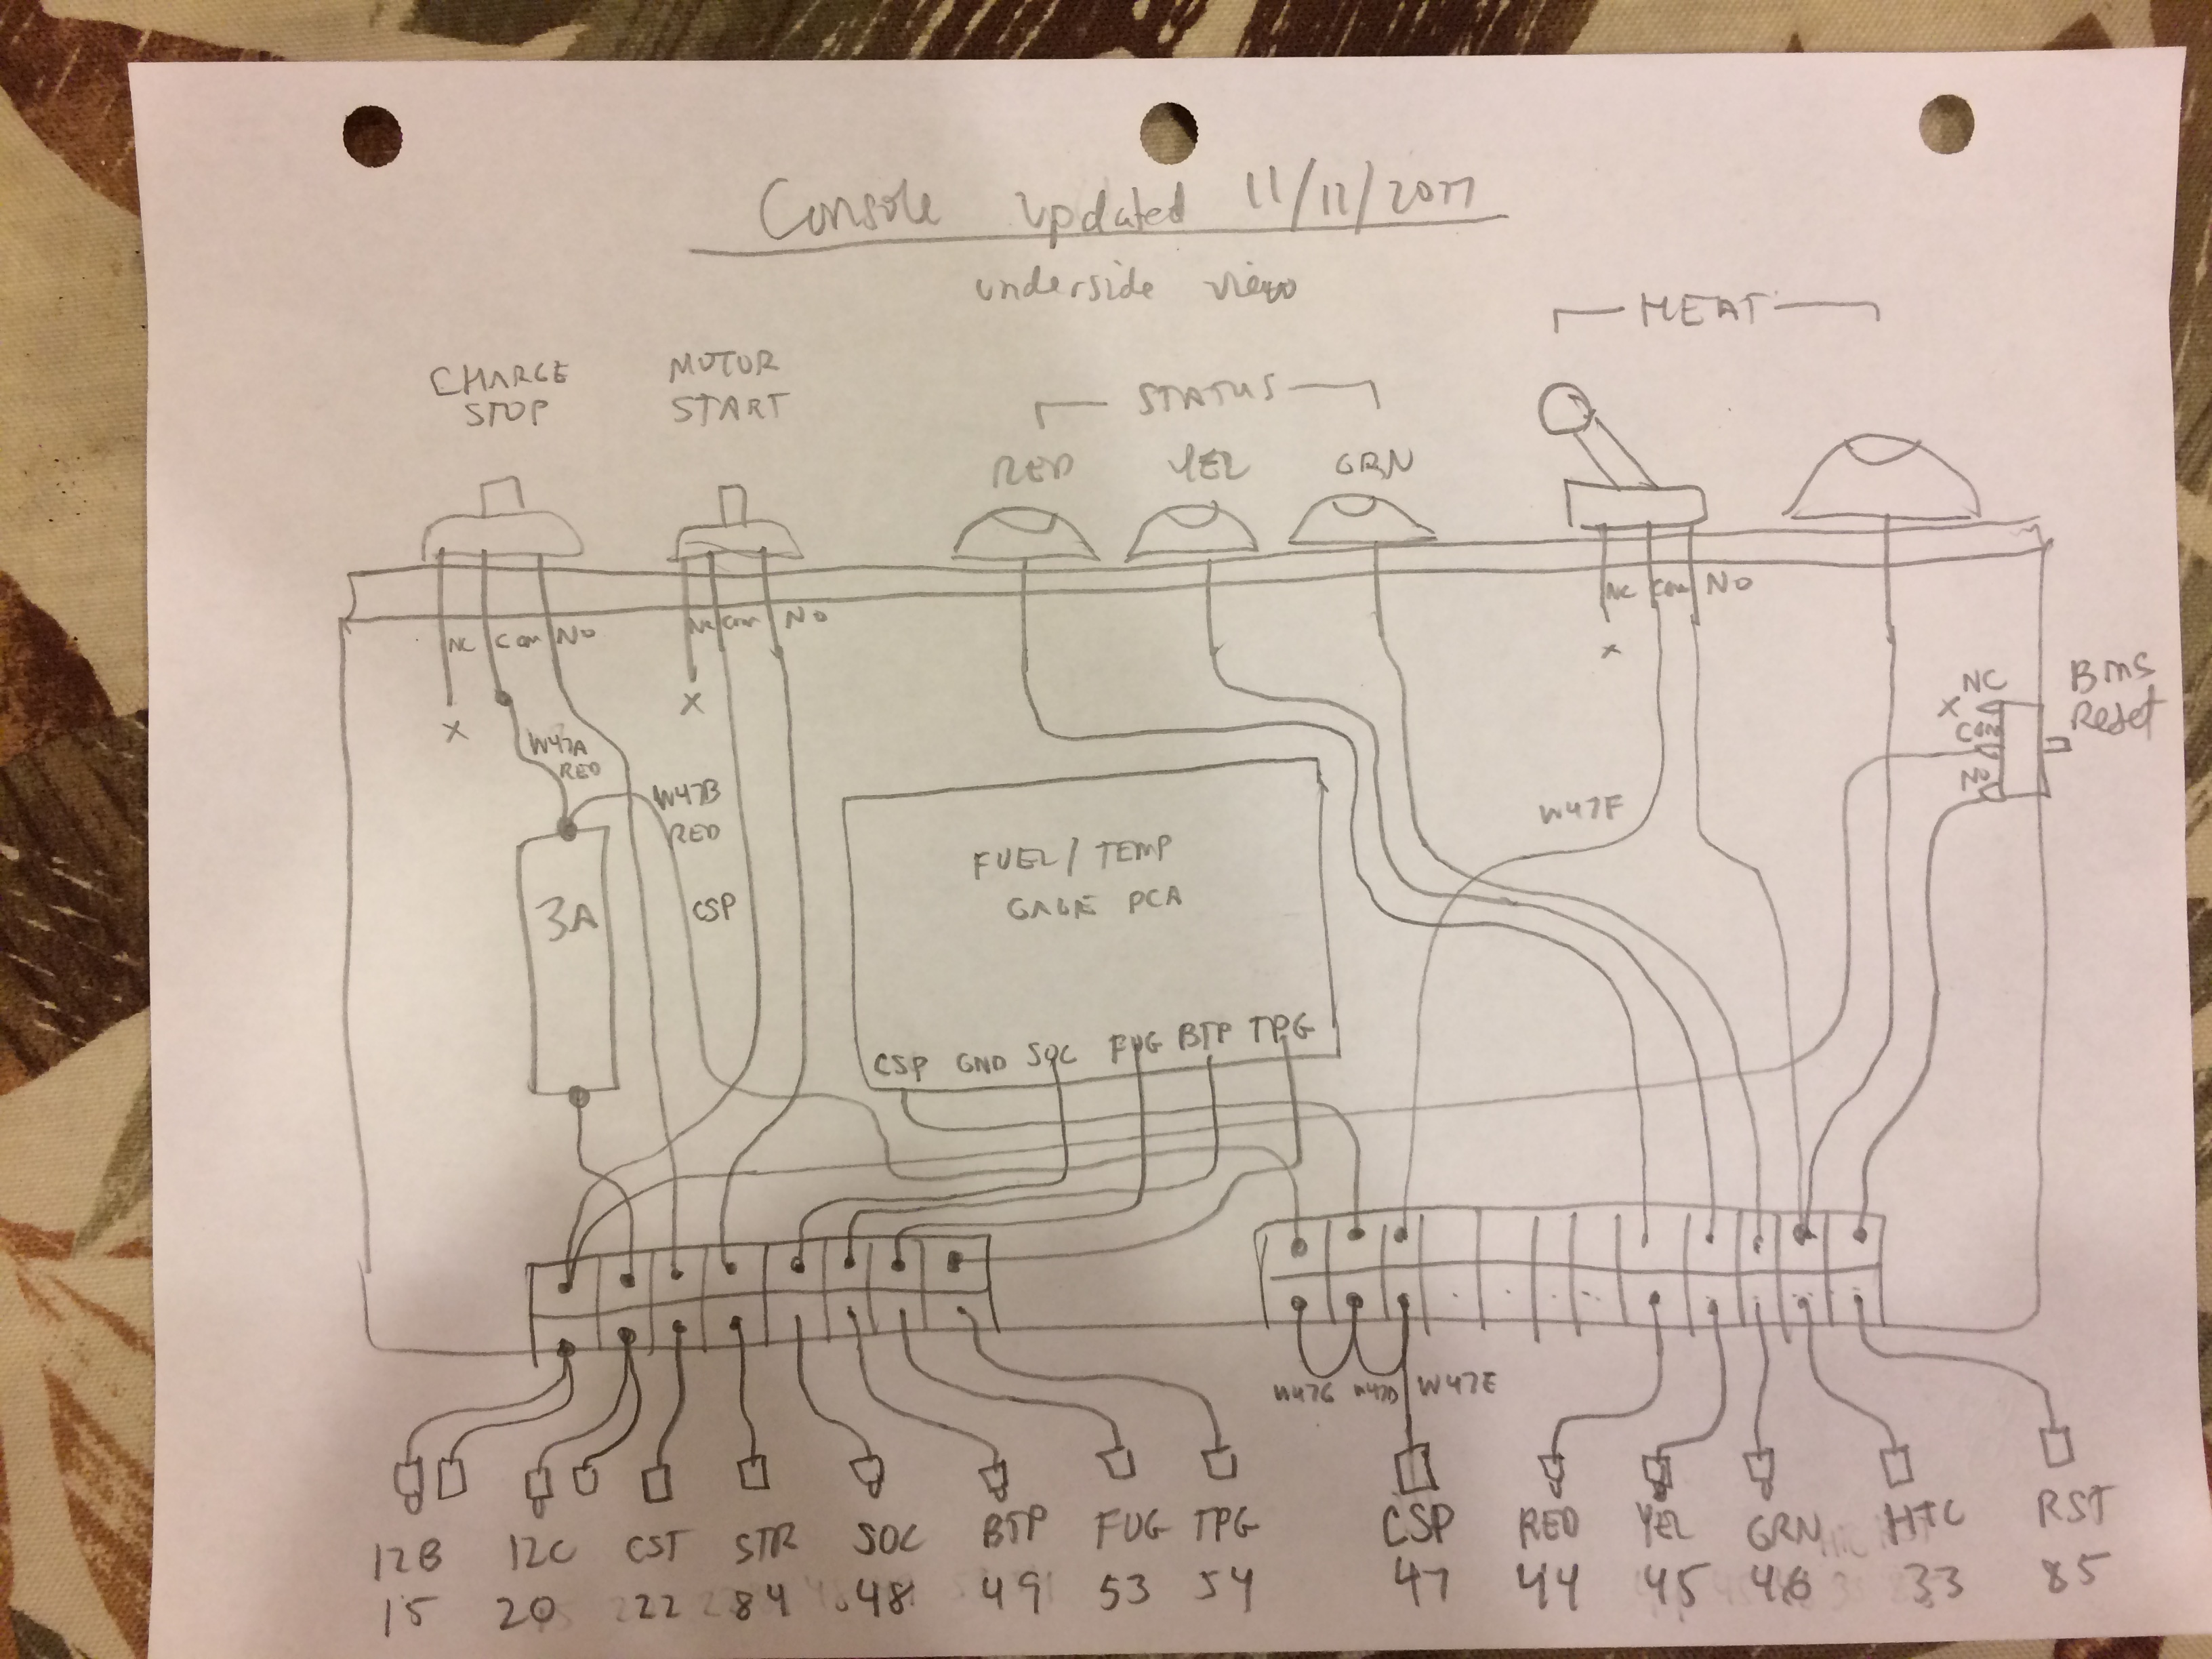 Console updated 11/11/2017
underside view
HEAT
CHARGE
STOP
MOTOR
START
STATUS
RED YEL GRN
NC Com NO
NC Com NO
NC Com NO
x
X
x
BMS
Reset
NC
X
Com
NO
W47A
RED
W47B
RED
W47F
3A
CSP
FUEL / TEMP
GAGE PCA
CSP GND SOC FUG BTP TPG
W47G W47D W47E
12B 12C CST STR SOC BTP FUG TPG CSP RED YEL GRN HTC RST
15 20 22 84 48 49 53 54 47 44 45 46 33 85